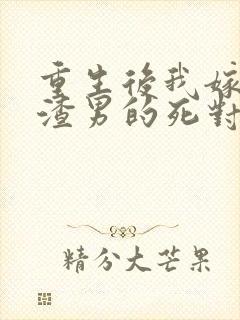 重生後我嫁
渣男的死對
精分大芒果